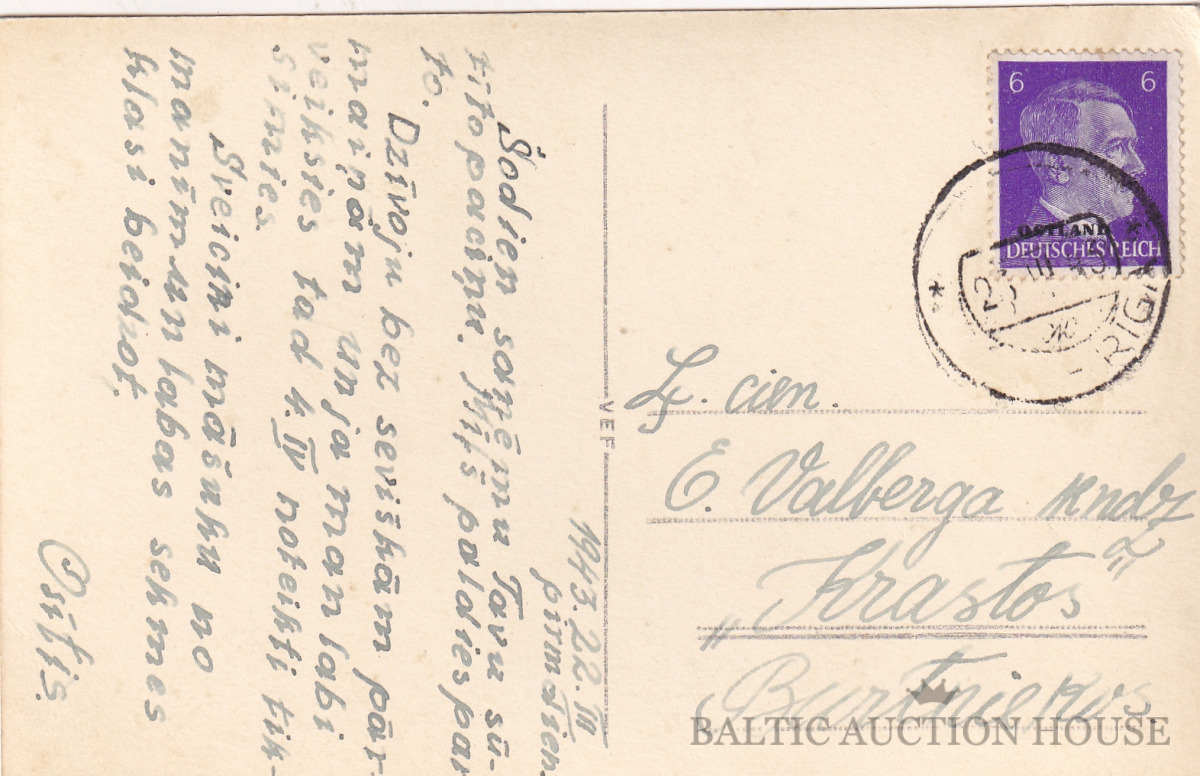 1943. 22. III
pirmdien.
Šodien saņēmu Tavu sū-
tīto paciņu. Mīļš paldies par
to.
Dzīvoju bez sevišķām pār-
maiņām un ja man labi
veiksies tad 4. IV noteikti tik-
simies.
Sveicini māsuku no
manīm un labas sekmes
klasi beidzot.
Osītis
VEF
6 6
OSTLAND
DEUTSCHES REICH
III 43
RIGA
Ļ. cien.
E. Valberga kndz
"Krastos"
Burtniekos.
BALTIC AUCTION HOUSE